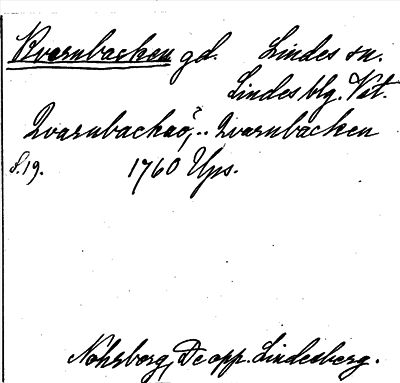 Kvarnbacken gd. Lindes sn.
Lindesblg. Vst.
Qvarnbacka, .. Qvarnbacken
s. 19. 1760 Ups.
Nohrborg, De opp. Lindesberg.